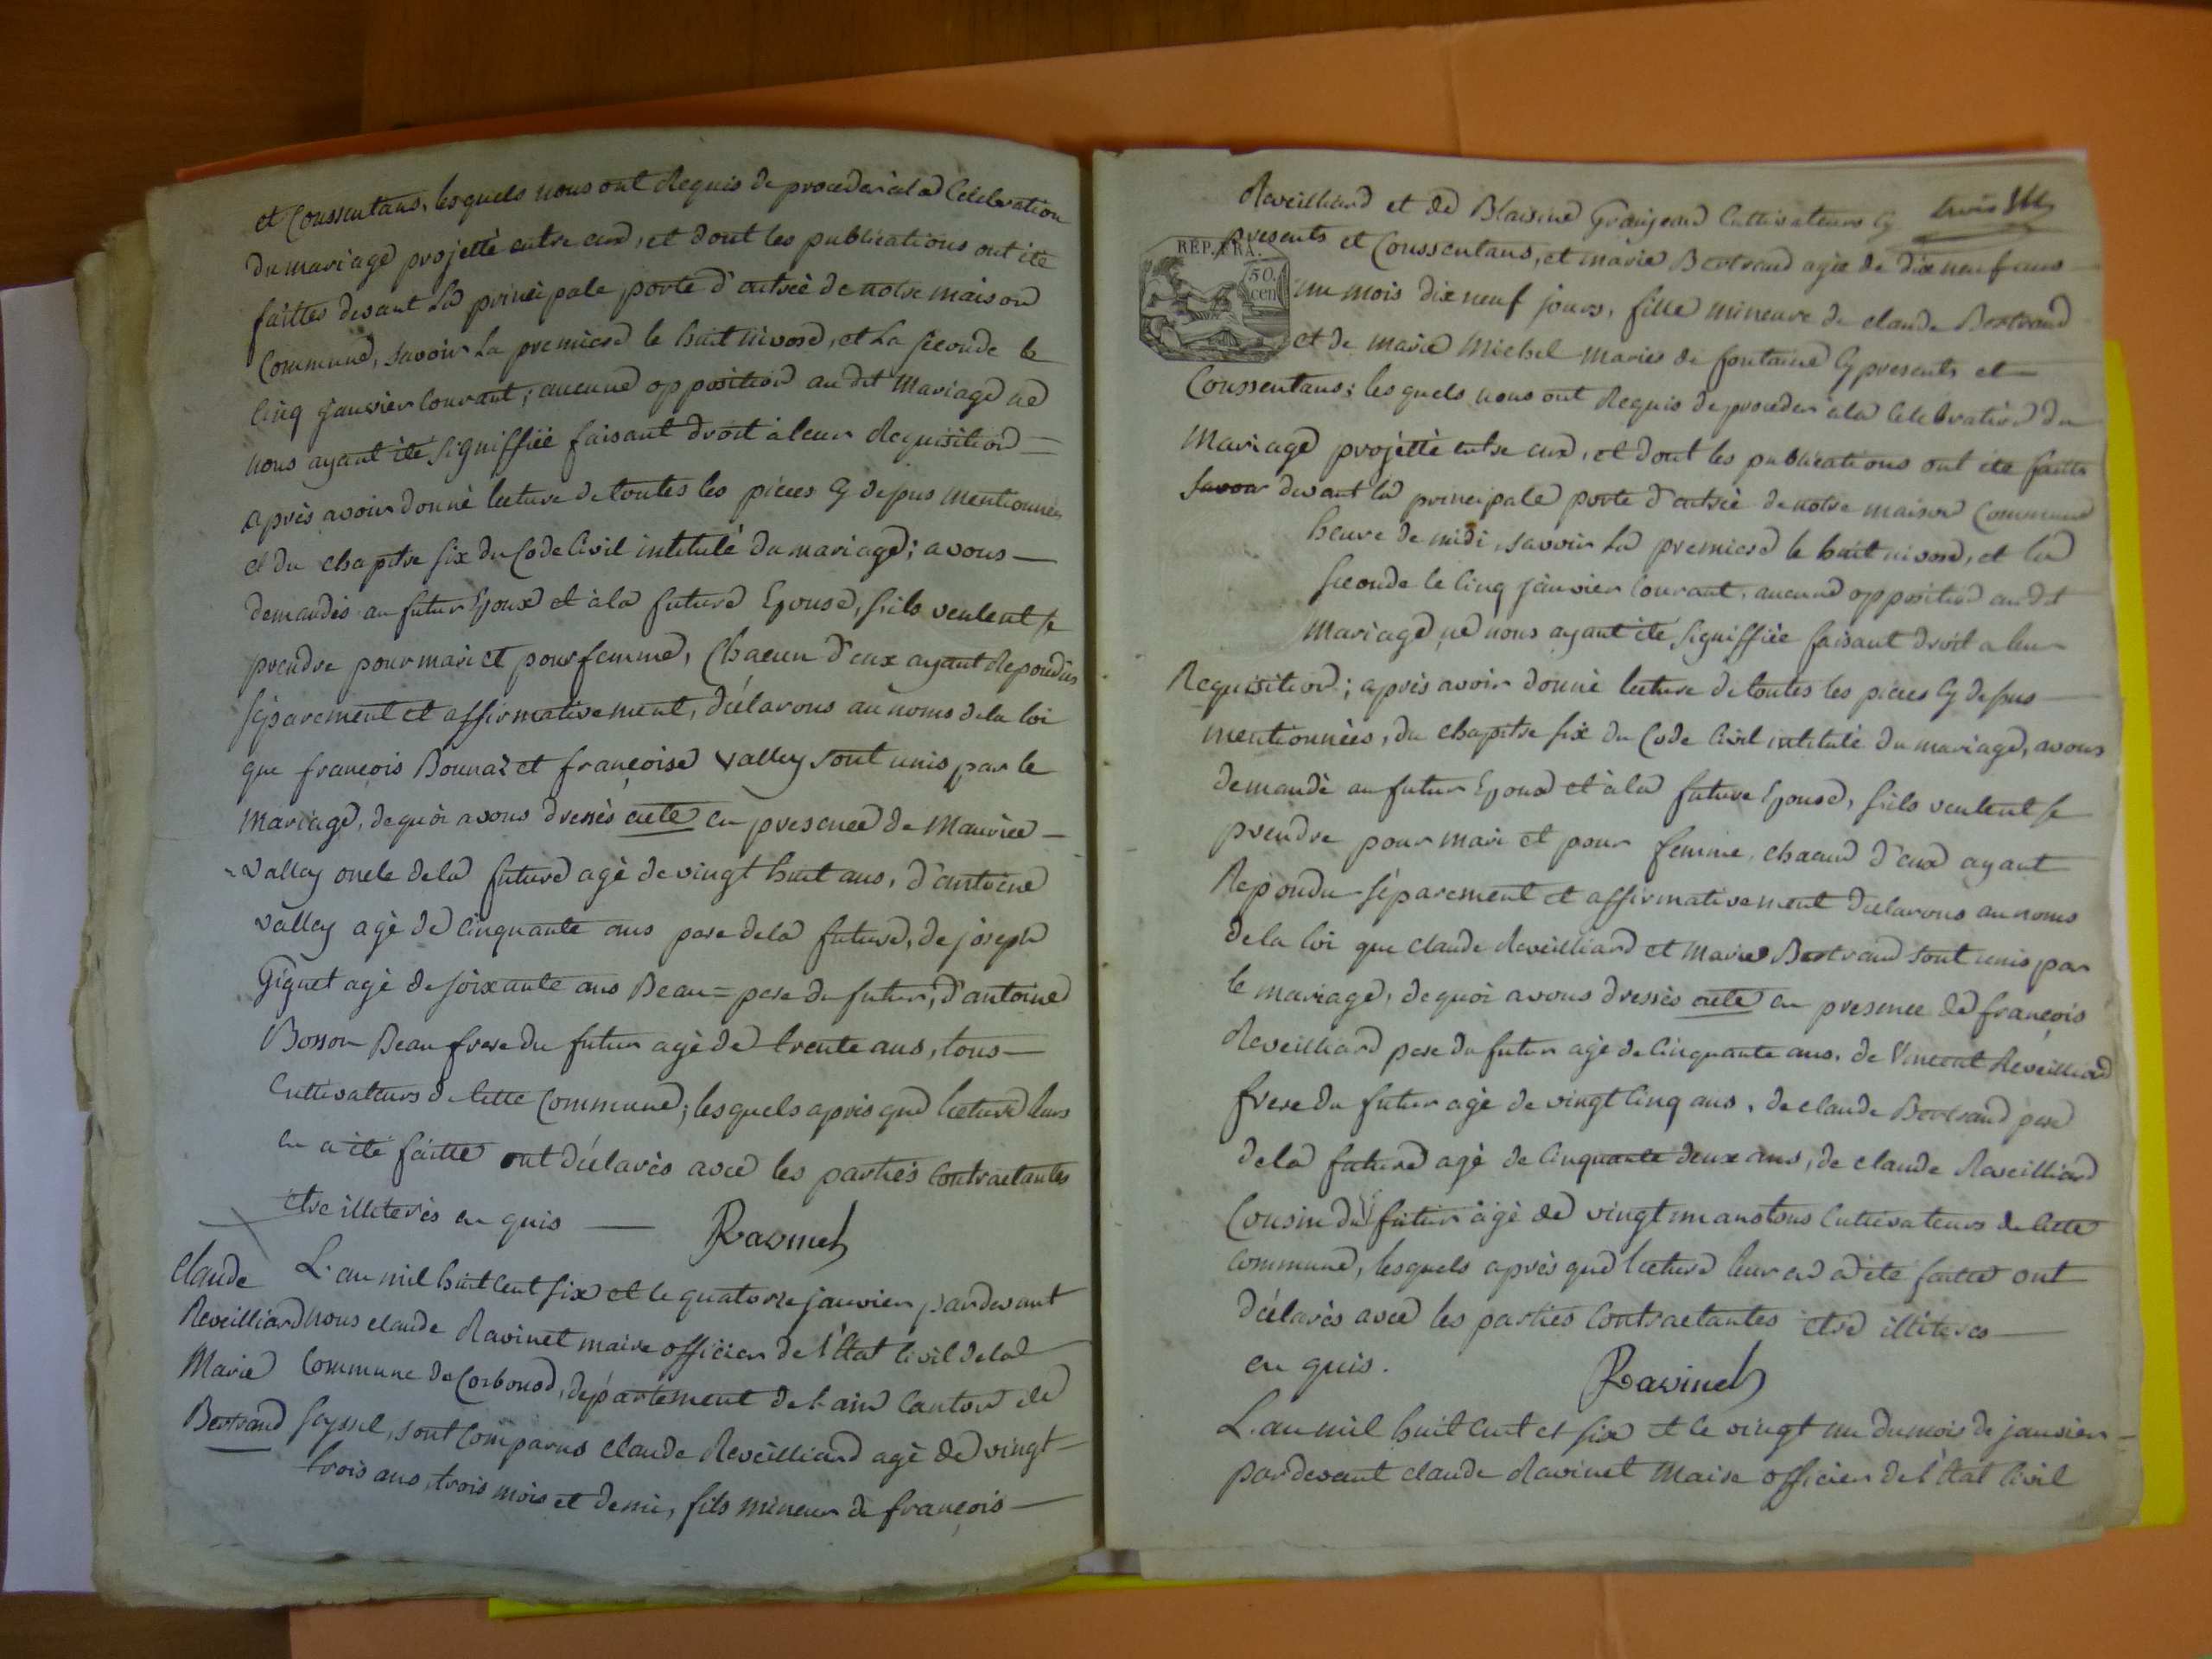 et Conssentans, lesquels nous ont Requis de proceder à la Celebration
du mariage projetté entre eux, et dont les publications ont été
faittes devant la principale porte d'entrée de notre maison
Commune, savoir La premiere le huit nivose, et La seconde le
Cinq janvier Courant; aucune opposition au dit Mariage ne
nous ayant été signiffiée faisant droit à leur Requisition =
après avoir donné lecture de toutes les pieces Cy dessus mentionnées
et du chapitre six du Code Civil intitulé du mariage; avons
demandés au futur Epoux et à la future Epouse, s'ils veulent se
prendre pour mari et pour femme, Chacun d'eux ayant Repondus
séparement et affirmativement, déclarons au noms de la loi
que françois Bounaz et françoise Valley sont unis par le
Mariage, de quoi avons dressés acte en presence de Maurice
Valley oncle de la future agé de vingt huit ans, d'antoine
Valley agé de Cinquante ans pere de la future, de joseph
Giguet agé de soixante ans Beau=pere du futur, d'antoine
Bosson Beau frere du futur agé de trente ans, tous
Cultivateurs de Cette Commune; lesquels après que lecture leurs
en a été faitte ont déclarés avec les parties Contractantes
etre illiterés en quis — Ravinet
Claude
Reveilliard
Marie
Bertrand
L'an mil huit Cent six et le quatorze janvier pardevant
nous claude Ravinet maire officier de l'Etat Civil de la
Commune de Corbonod, département de l'ain Canton de
Seyssel, sont Comparus claude Reveilliard agé de vingt
trois ans, trois mois et demi, fils mineur de françois
trois
Reveilliard et de Blaisine Granjean Cultivateurs Cy
presents et Conssentans, et marie Bertrand agée de dix neuf ans
REP. FRA.
50.
cen
un mois dix neuf jours, fille mineure de claude Bertrand
et de marie Michel mariés de fontaine Cy presents et
Conssentans; lesquels nous ont Requis de proceder à la Celebration du
Mariage projetté entre eux, et dont les publications ont été faittes
savoir devant la principale porte d'entrée de notre maison Commune
heure de midi, savoir La premiere le huit nivose, et la
seconde le Cinq janvier Courant, aucune opposition au dit
Mariage ne nous ayant été signiffiée faisant droit a leur
Requisition; après avoir donné lecture de toutes les pieces Cy dessus
mentionnées, du chapitre six du Code Civil intitulé du mariage, avons
demandé au futur Epoux et à la future Epouse, s'ils veulent se
prendre pour mari et pour femme, chacun d'eux ayant
Repondu séparement et affirmativement déclarons au noms
de la loi que claude Reveilliard et Marie Bertrand sont unis par
le mariage, de quoi avons dressés acte en presence de françois
Reveilliard pere du futur agé de Cinquante ans, de Vincent Reveilliard
frere du futur agé de vingt Cinq ans, de claude Bertrand pere
de la future agé de Cinquante deux ans, de claude Reveilliard
Cousin du futur agé de vingt un ans tous Cultivateurs de Cette
Commune, lesquels après que lecture leur en a été faitte ont
déclarés avec les parties Contractantes etre illiterés
en quis. Ravinet
L'an mil huit Cent et six et le vingt un du mois de janvier
pardevant claude Ravinet Maire officier de l'Etat Civil